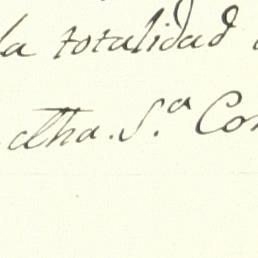 la totalidad
dha. S.ª Con